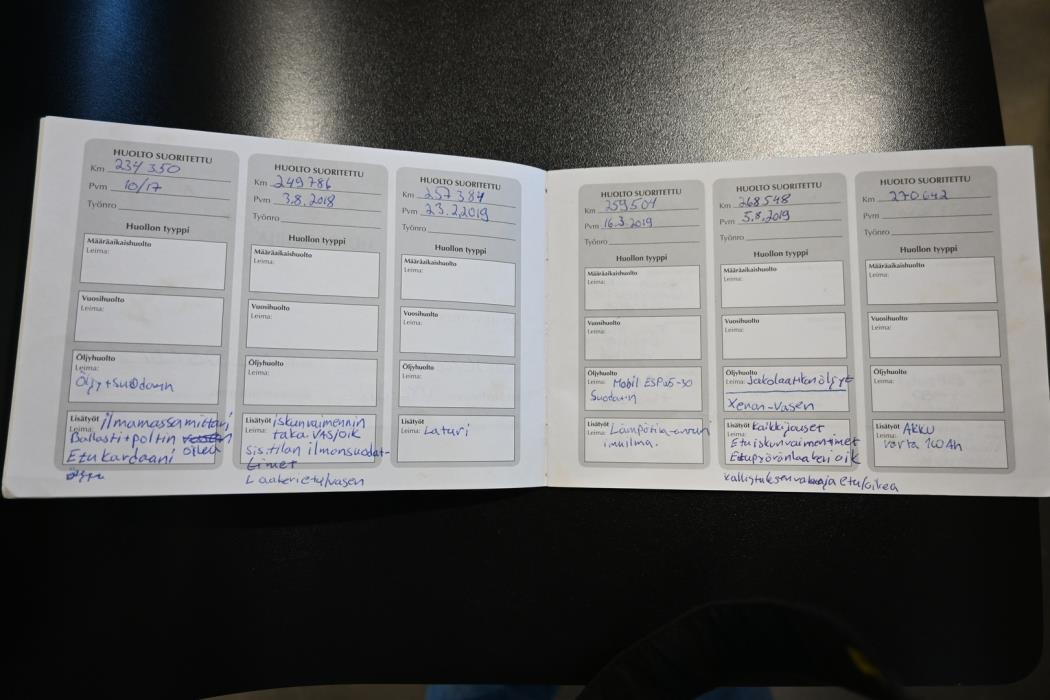 HUOLTO SUORITETTU
Km 234 350
Pvm 10/17
Työnro
Huollon tyyppi
Määräaikaishuolto
Leima:
Vuosihuolto
Leima:
Öljyhuolto
Leima:
Öljy+suodatin
Lisätyöt ilmamassamittari
Leima:
Ballasti+poltin oikea
Etukardaani
HUOLTO SUORITETTU
Km 249 786
Pvm 3.8.2018
Työnro
Huollon tyyppi
Määräaikaishuolto
Leima:
Vuosihuolto
Leima:
Öljyhuolto
Leima:
Lisätyöt iskunvaimennin
Leima: taka vas/oik
Sis.tilan ilmonsuodat-
timet
Laakeri etu/vasen
HUOLTO SUORITETTU
Km 257 384
Pvm 23.2.2019
Työnro
Huollon tyyppi
Määräaikaishuolto
Leima:
Vuosihuolto
Leima:
Öljyhuolto
Leima:
Lisätyöt
Leima: Laturi
HUOLTO SUORITETTU
Km 259501
Pvm 16.3.2019
Työnro
Huollon tyyppi
Määräaikaishuolto
Leima:
Vuosihuolto
Leima:
Öljyhuolto
Leima: Mobil ESP 5-30
Suodatin
Lisätyöt
Leima: Lämpötila-anturi
imuilma.
HUOLTO SUORITETTU
Km 268548
Pvm 5.8.2019
Työnro
Huollon tyyppi
Määräaikaishuolto
Leima:
Vuosihuolto
Leima:
Öljyhuolto
Leima: Jakolaatikonöljyt
Xenon-Vasen
Lisätyöt kaikki jouset
Leima:
Etuiskunvaimentimet
Etupyöränlaakeri oik
kallistuksenvakaaja etu/oikea
HUOLTO SUORITETTU
Km 270642
Pvm
Työnro
Huollon tyyppi
Määräaikaishuolto
Leima:
Vuosihuolto
Leima:
Öljyhuolto
Leima:
Lisätyöt AKKU
Leima: varta 100Ah